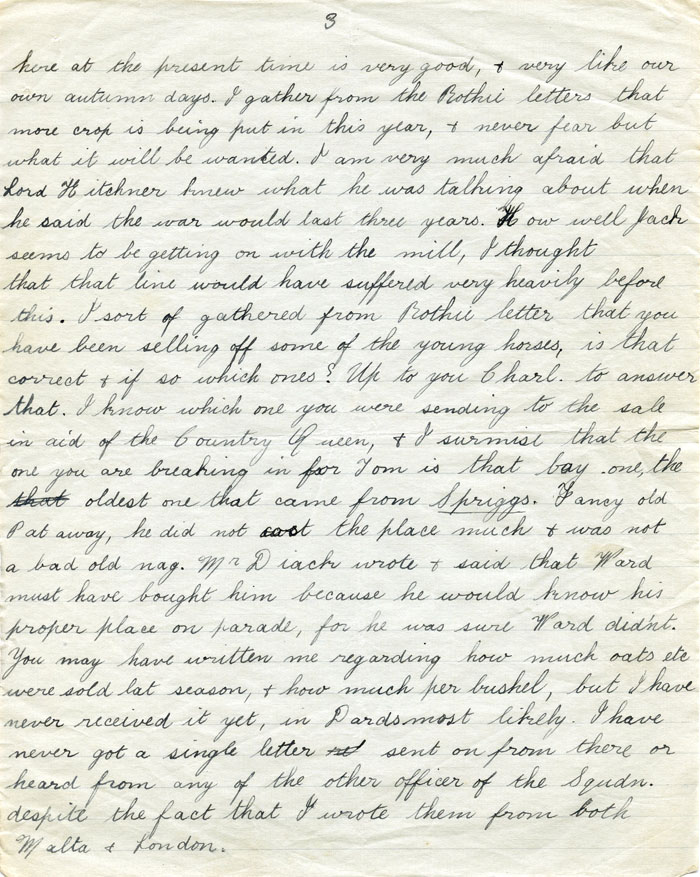 3
here at the present time is very good, & very like our
own autumn days. I gather from the Rothie letters that
more crop is being put in this year, & never fear but
what it will be wanted. I am very much afraid that
Lord Kitchner knew what he was talking about when
he said the war would last three years. How well Jack
seems to be getting on with the mill, I thought
that that line would have suffered very heavily before
this. I sort of gathered from Rothie letter that you
have been selling off some of the young horses, is that
correct & if so which ones? Up to you Charl. to answer
that. I know which one you were sending to the sale
in aid of the Country Queen, & I surmise that the
one you are breaking in for Tom is that bay one, the
that oldest one that came from Spriggs. Fancy old
Pat away, he did not cost the place much & was not
a bad old nag. Mr Diack wrote & said that Ward
must have bought him because he would know his
proper place on parade, for he was sure Ward didn't.
You may have written me regarding how much oats etc
were sold lat season, & how much per bushel, but I have
never received it yet, in Dards most likely. I have
never got a single letter sent on from there or
heard from any of the other officer of the Squdn.
despite the fact that I wrote them from both
Malta & London.